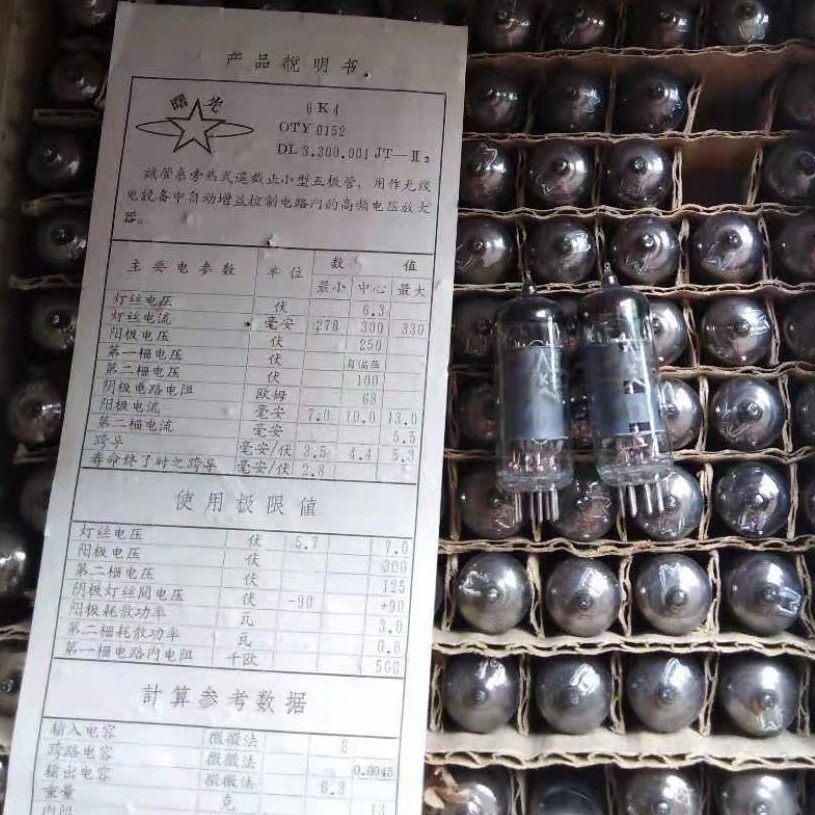 产品说明书
曙光
6K4
OTY 0152
DL 3.300.001 JT—Ⅱ₂
旁热式遥截止小型五极管，用作无线
电设备中自动增益控制电路内的高频电压放大
器。
主要电参数 单位 数值
最小 中心 最大
灯丝电压 伏 6.3
灯丝电流 毫安 278 300 330
阳极电压 伏 250
第一栅电压 伏 自偏压
第二栅电压 伏 100
阴极电路电阻 欧姆 68
阳极电流 毫安 7.0 10.0 13.0
第二栅电流 毫安 5.5
跨导 毫安/伏 3.5 4.4 5.3
寿命终了时之跨导 毫安/伏 2.8
使用极限值
灯丝电压 伏 5.7 7.0
阳极电压 伏 300
第二栅电压 伏 125
阴极灯丝间电压 伏 -90 +90
阳极耗散功率 瓦 3.0
第二栅耗散功率 瓦 0.6
第一栅电路内电阻 千欧 500
計算参考数据
输入电容 微微法
跨路电容 微微法 0.0045
输出电容 微微法 6.3
重量 克
内阻 13